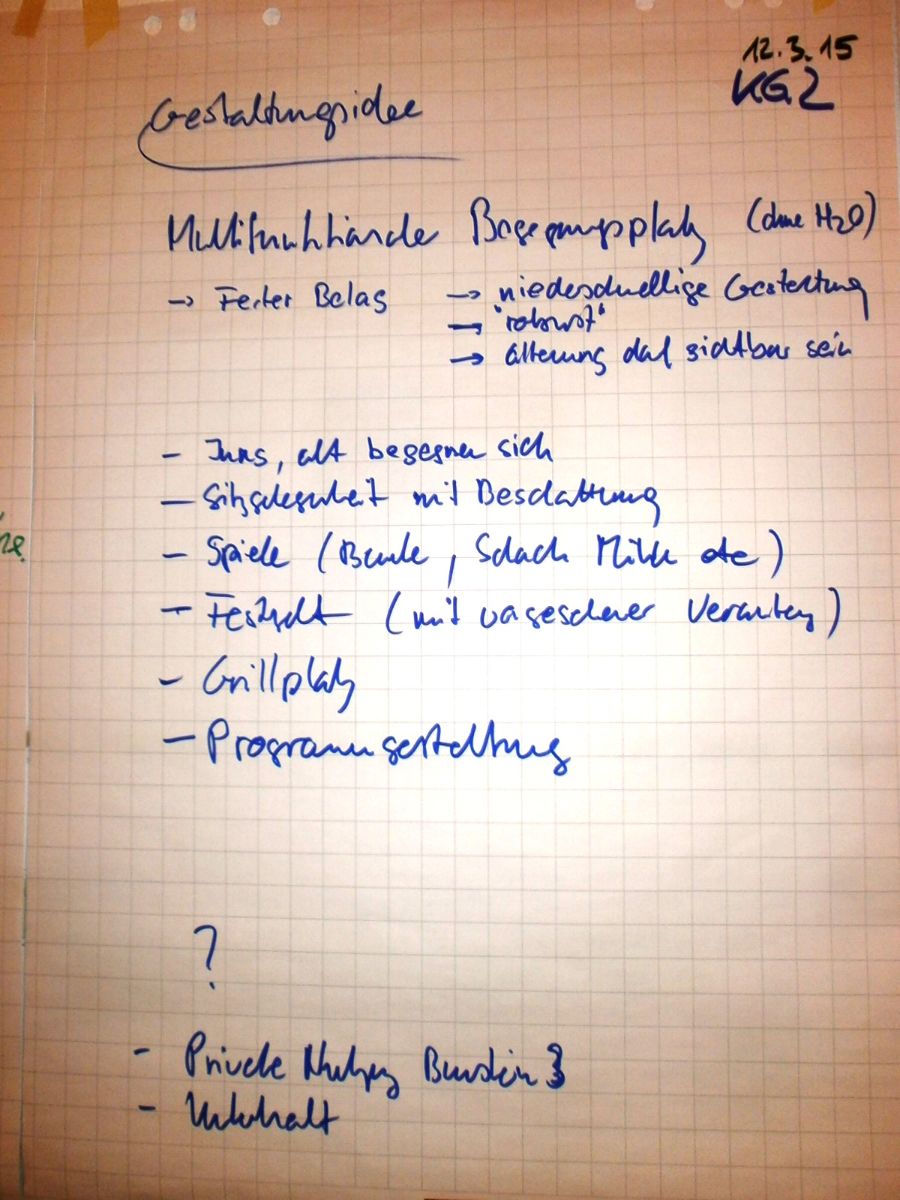 12.3.15
KG2
Gestaltungsidee
Multifunktionaler Begegnungsplatz (ohne H2O)
→ Fester Belag → niederschwellige Gestaltung
→ "robust"
→ Alterung darf sichtbar sein
- Jung, alt begegnen sich
- Sitzgelegenheit mit Beschattung
- Spiele (Boule, Schach Mühle etc)
- Festzelt (mit vorgesehener Verankerung)
- Grillplatz
- Programmgestaltung
?
- Private Nutzung
- Unterhalt